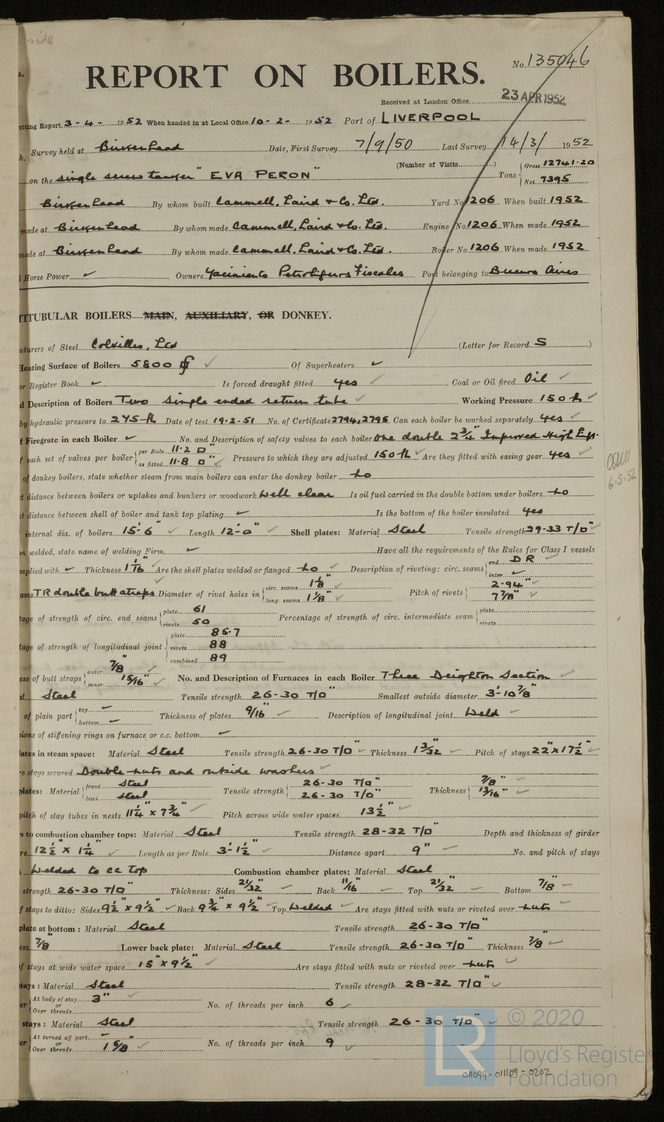 No. 135046
REPORT ON BOILERS.
Received at London Office 23 APR 1952
riting Report 3-4- 1952 When handed in at Local Office 10-2- 1952 Port of LIVERPOOL
Survey held at Birkenhead Date, First Survey 7/9/50 Last Survey 14/3/ 1952
(Number of Visits)
on the single screw tanker "EVA PERON" Tons Gross 12741.20 Net 7395
Birkenhead By whom built Cammell, Laird & Co. Ltd. Yard No 1206 When built 1952
made at Birkenhead By whom made Cammell, Laird & Co. Ltd. Engine No 1206 When made 1952
made at Birkenhead By whom made Cammell, Laird & Co. Ltd. Boiler No 1206 When made 1952
Horse Power Owners Yacimientos Petroliferos Fiscales Port belonging to Buenos Aires
TITUBULAR BOILERS MAIN, AUXILIARY, OR DONKEY.
cturers of Steel Colvilles, Ltd (Letter for Record S
Heating Surface of Boilers 5800 Of Superheaters
or Register Book Is forced draught fitted yes Coal or Oil fired Oil
d Description of Boilers Two single ended return tube Working Pressure 150 lb
by hydraulic pressure to 275 lb Date of test 19.2.51 No. of Certificate 2794, 2795 Can each boiler be worked separately yes
f Firegrate in each Boiler No. and Description of safety valves to each boiler one double 2 3/4" Improved High Lift
f each set of valves per boiler per Rule 11.2 □" as fitted 11.8 □" Pressure to which they are adjusted 150 lb Are they fitted with easing gear yes
of donkey boilers, state whether steam from main boilers can enter the donkey boiler no
t distance between boilers or uptakes and bunkers or woodwork well clear Is oil fuel carried in the double bottom under boilers no
t distance between shell of boiler and tank top plating Is the bottom of the boiler insulated yes
6.5.52
internal dia. of boilers 15'-6" Length 12'-0" Shell plates: Material Steel Tensile strength 29-33 T/□"
n welded, state name of welding Firm Have all the requirements of the Rules for Class I vessels
mplied with Thickness 1 1/16" Are the shell plates welded or flanged no Description of riveting: circ. seams end DR inter
ams TR double butt straps Diameter of rivet holes in circ. seams 1 1/8" long. seams 1 1/8" Pitch of rivets 2.94" 7 7/8"
tage of strength of circ. end seams plate 61 rivets 50 Percentage of strength of circ. intermediate seam plate rivets
tage of strength of longitudinal joint plate 85.7 rivets 88 combined 89
ess of butt straps outer 7/8" inner 15/16" No. and Description of Furnaces in each Boiler Three Deighton Section
al Steel Tensile strength 26-30 T/□" Smallest outside diameter 3'-10 7/8"
of plain part top bottom Thickness of plates 9/16" Description of longitudinal joint Weld
ions of stiffening rings on furnace or c.c. bottom
lates in steam space: Material Steel Tensile strength 26-30 T/□" Thickness 1 3/32" Pitch of stays 22" x 17 1/2"
e stays secured Double nuts and outside washers
plates: Material front Steel back Steel Tensile strength 26-30 T/□" 26-30 T/□" Thickness 7/8" 13/16"
pitch of stay tubes in nests 11 1/4" x 7 3/4" Pitch across wide water spaces 13 1/2"
s to combustion chamber tops: Material Steel Tensile strength 28-32 T/□" Depth and thickness of girder
re 12 1/2" x 1 1/4" Length as per Rule 3'-1 1/2" Distance apart 9" No. and pitch of stays
Welded to cc top Combustion chamber plates: Material Steel
strength 26-30 T/□" Thickness: Sides 21/32" Back 11/16" Top 21/32" Bottom 7/8"
f stays to ditto: Sides 9 1/2" x 9 1/2" Back 9 3/4" x 9 1/2" Top Welded Are stays fitted with nuts or riveted over nuts
plate at bottom: Material Steel Tensile strength 26-30 T/□"
ess 7/8" Lower back plate: Material Steel Tensile strength 26-30 T/□" Thickness 7/8"
f stays at wide water space 15" x 9 1/2" Are stays fitted with nuts or riveted over nuts
stays: Material Steel Tensile strength 28-32 T/□"
er At body of stay or Over threads 3" No. of threads per inch 6
stays: Material Steel Tensile strength 26-30 T/□"
er At turned off part or Over threads 1 5/8" No. of threads per inch 9
LR © 2020
Lloyd's Register
Foundation
011099-011109-0202